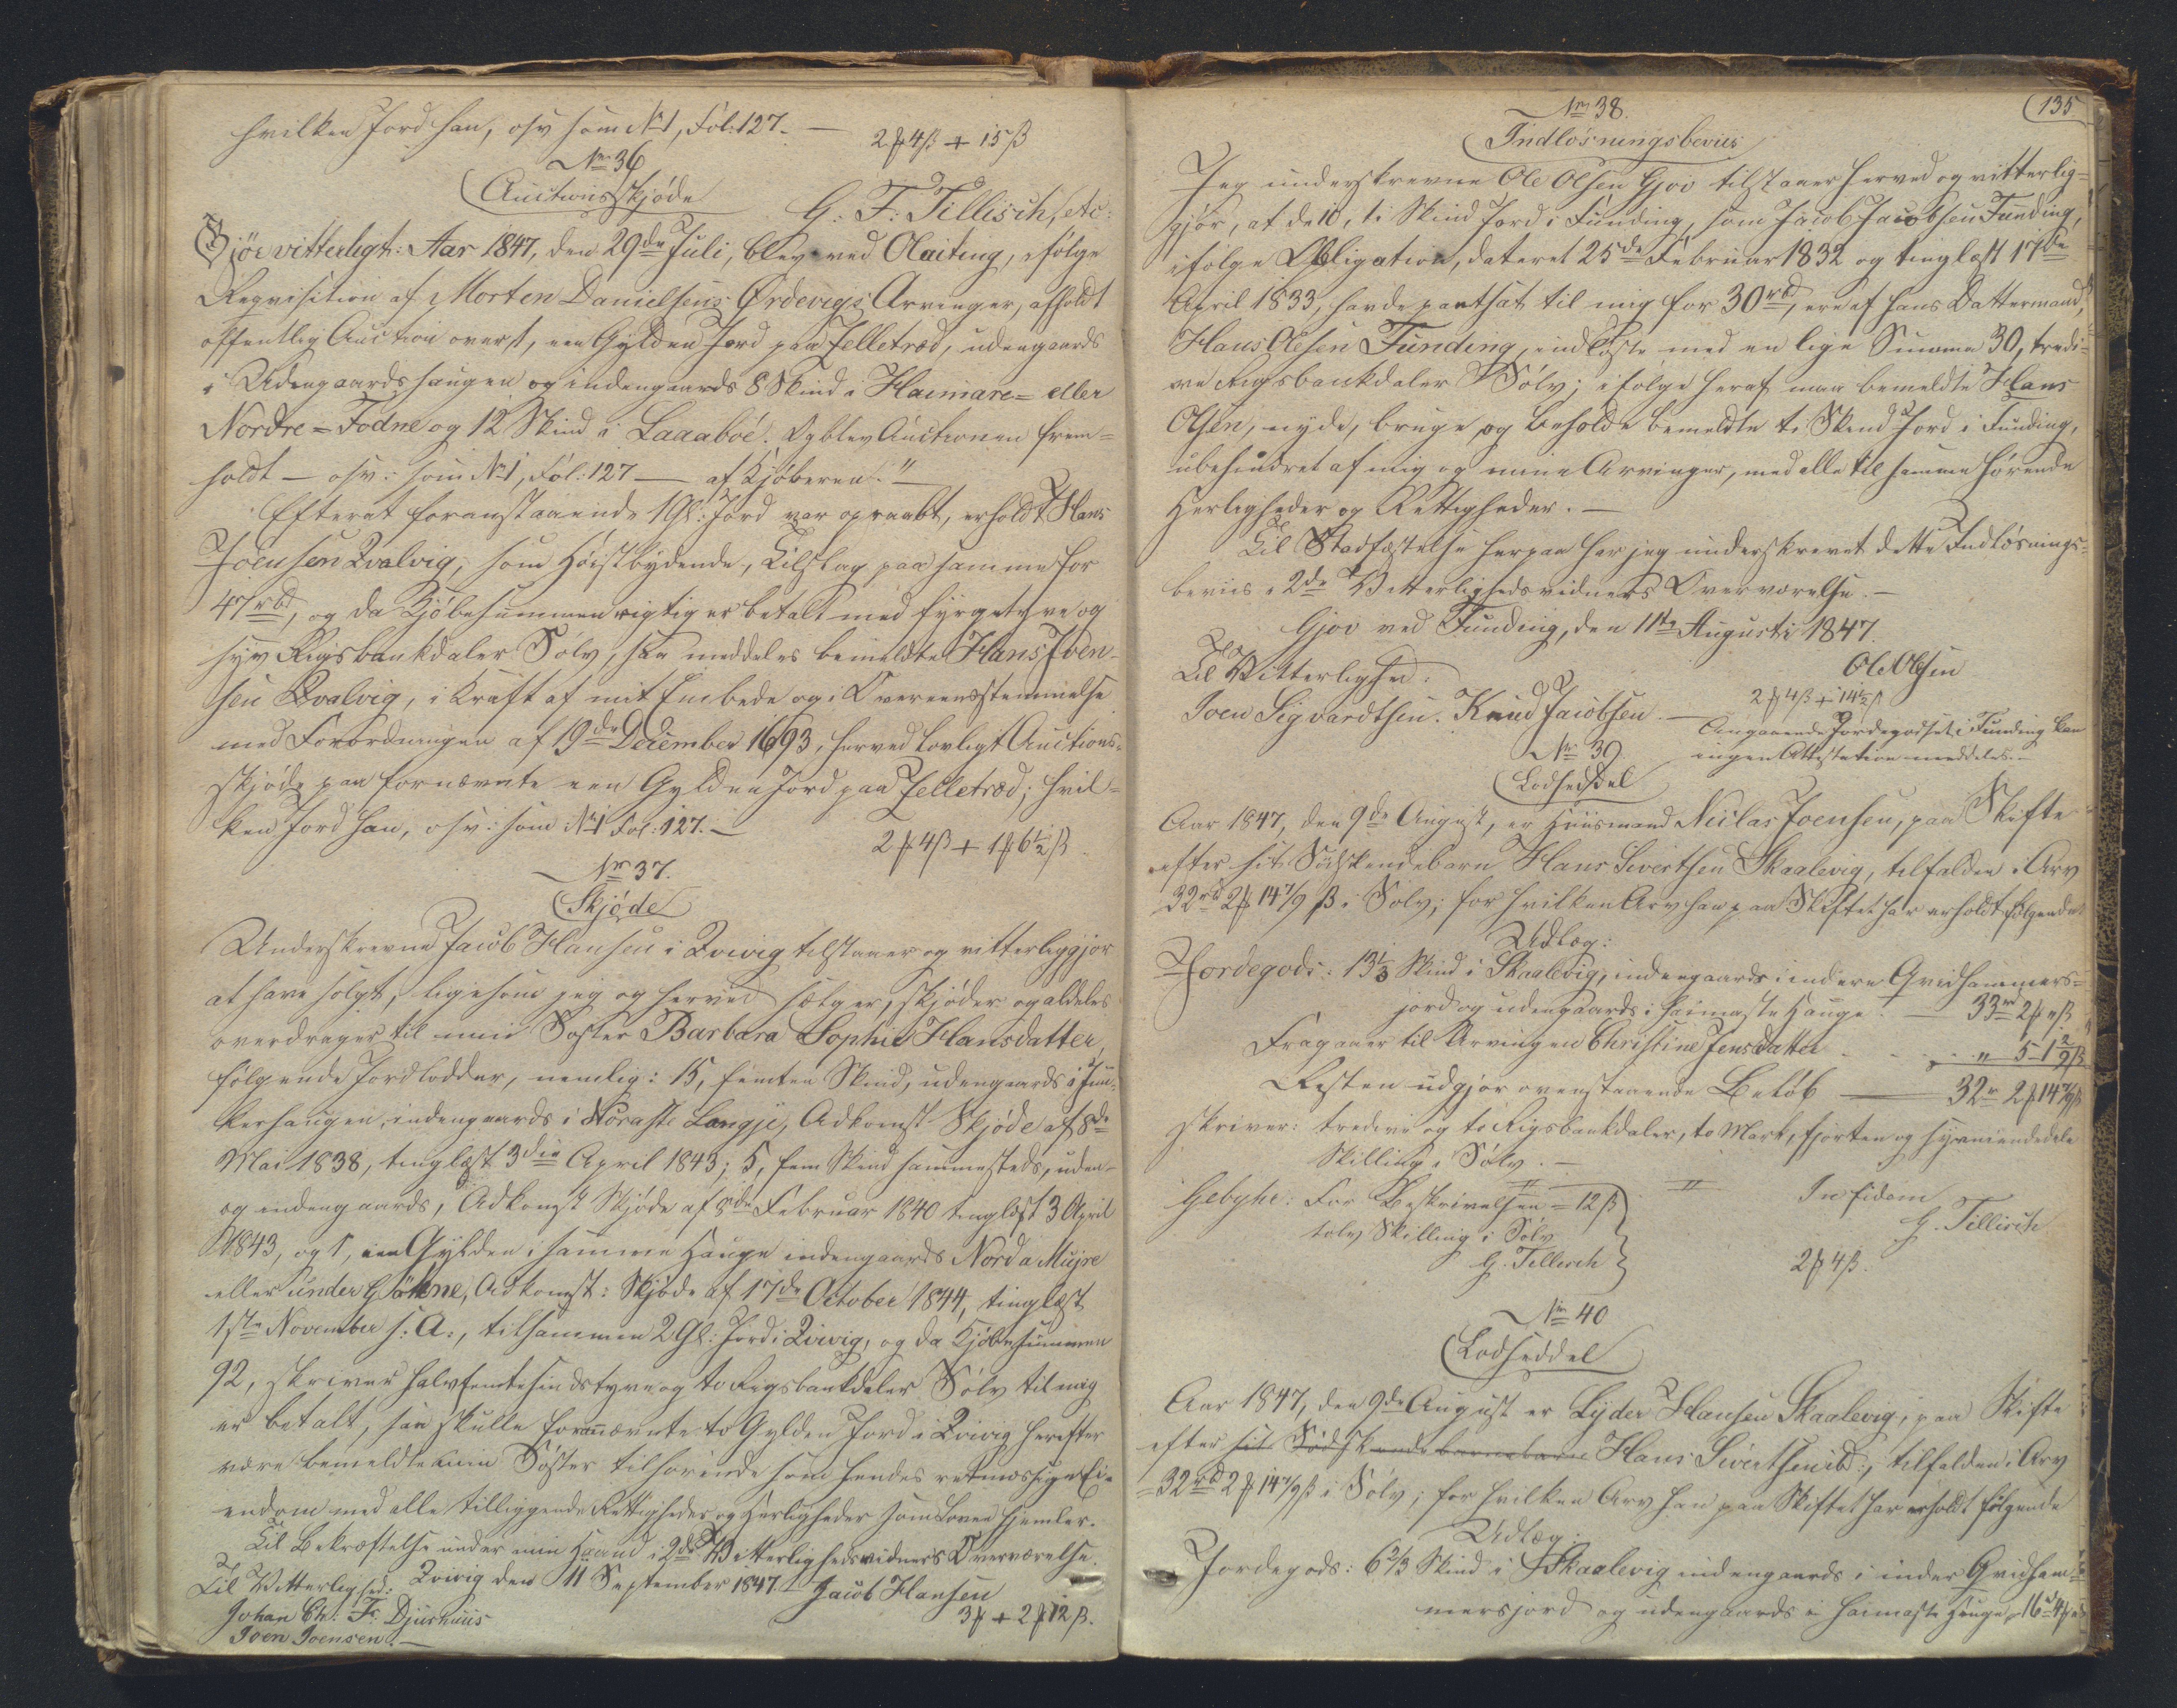 hvilken Jord han, osv som No 1, Fol: 127. —
2 ℔ 4 ß + 15 ß
No 36
Auctionsskjøde
G. F. Tillisch, etc:
Gjør vitterligt: Aar 1847, den 29de Juli, blev ved Olaiting, ifølge
Reqvisition af Morten Danielsens Ördevigs Arvinger, afholdt
offentlig Auction over 1, een Gylden Jord paa Felletræd, udengaards
i Udengaardshaugen og indengaards 8 Skind i Haimare= eller
Nordre=Todne og 12 Skind i Laaaboé. Og blev Auctionen frem=
holdt — osv: som No 1, Fol: 127 — af Kjøberen." —
Efterat foranstaaende 1 Gl: Jord var opraabt, erholdt Hans
Joensen Qvalvig, som Høistbydende, Tilslag paa samme for
47 rbd, og da Kjøbesummen rigtig er betalt med fyrgetyve og
syv Rigsbankdaler Sølv, saa meddeles bemeldte Hans Joen=
sen Qvalvig, i Kraft af mit Embede og i Overeensstemmelse
med Forordningen af 19de December 1693, herved lovligt Auctions=
skjøde paa fornævnte een Gylden Jord paa Felletræd; hvil=
ken Jord han, osv: som No 1 Fol: 127. —
2 ℔ 4 ß + 1 ℔ 6½ ß.
No 37.
Skjøde
Underskrevne Jacob Hansen i Qvivig tilstaaer og vitterliggjør
at have solgt, ligesom jeg og herved sælger, skjøder og aldeles
overdrager til min Søster Barbara Sophie Hansdatter,
følgende Jordlodder, nemlig: 15, femten Skind, udengaards i Jun=
kershaugen, indengaards i Noraste Langje, Adkomst Skjøde af 8de
Mai 1838, tinglæst 3die April 1843; 5, fem Skind sammesteds, uden=
og indengaards, Adkomst Skjøde af 8de Februar 1840 tinglæst 3 April
1843, og 1, een Gylden i samme Hauge indengaards Norda Mujre
eller under Gótúne, Adkomst: Skjøde af 17de October 1844, tinglæst
1ste November s: A:, tilsammen 2 Gl: Jord i Qvivig, og da Kjøbesummen
92, skriver halvfemtesindstyve og to Rigsbankdaler Sølv til mig
er betalt, saa skulle fornævnte to Gylden Jord i Qvivig herefter
være bemeldte min Søster tilhørende som hendes retmæssige Ei=
endom med alle tilliggende Rettigheder og Herligheder som Loven hjemler.
Til Bekræftelse under min Haand i 2de Vitterlighedsvidners Overværelse.
Qvivig den 11 September 1847. Jacob Hansen
Til Vitterlighed:
Johan Chr. Fr. Djurhuus
3 ℔ + 2 ℔ 12 ß.
Joen Joensen. —
135
No 38.
Indløsningsbeviis
Jeg underskrevne Ole Olsen Gjov tilstaaer herved og vitterlig=
gjør, at de 10, ti Skind Jord i Funding, som Jacob Jacobsen Funding,
ifølge Obligation, dateret 25de Februar 1832 og tinglæst 17de
April 1833, havde pantsat til mig for 30 rbd, ere af hans Dattermand,
Hans Olesen Funding, indløste med en lige Summa 30, tredi=
ve Rigsbankdaler Sølv; ifølge heraf maa bemeldte Hans
Olsen, nyde, bruge og beholde bemeldte ti Skind Jord i Funding,
ubehindret af mig og mine Arvinger, med alle til samme hørende
Herligheder og Rettigheder. —
Til Stadfæstelse herpaa har jeg underskrevet dette Indløsnings=
beviis i 2de Vitterlighedsvidners Overværelse. —
Gjov ved Funding, den 11te Augusti 1847.
Ole Olsen
Til Vitterlighed:
2 ℔ 4 ß + 14½ ß
Joen Sigvardtsen. Knud Jacobsen. —
Angaaende Jordegodset i Funding kan
ingen Attestation meddeles. —
No 39.
Lodseddel
Aar 1847, den 9de August, er Huusmand Niclas Joensen, paa Skifte
efter sit Sødskendebarn Hans Sivertsen Skaalevig, tilfalden i Arv
32 rbd 2 ℔ 14 7/9 ß i Sølv; for hvilken Arv han paa Skiftet har erholdt følgende
Udlæg:
Jordegods: 13⅓ Skind i Skaalevig, indengaards i indere Qvidhammers=
jord og udengaards i haimaste Hauge. — 33 rd 2 ℔ " ß
Fragaaer til Arvingen Christine Jensdatter . . . . " 5 - 1 2/9 ß
Resten udgjør ovenstaaende Beløb — 32 r 2 ℔ 14 7/9 ß
skriver: tredive og to Rigsbankdaler, to Mark, fjorten og syvniendedele
Skilling i Sølv. —
Gebyhr: For Beskrivelsen = 12 ß
tolv Skilling i Sølv
G. Tillisch
In fidem
G. Tillisch
2 ℔ 4 ß.
No 40
Lodseddel
Aar 1847, den 9de August er Lyder Hansen Skaalevig, paa Skifte
efter sit Sødskendebarnebarn Hans Sivertsen ibd:, tilfalden i Arv
32 rbd 2 ℔ 14 7/9 ß i Sølv; for hvilken Arv han paa Skiftet har erholdt følgende
Udlæg:
Jordegods: 6⅔ Skind i Skaalevig indengaards i inder Qvidham=
mersjord og udengaards i haimaste Hauge, 16 rd 4 ℔